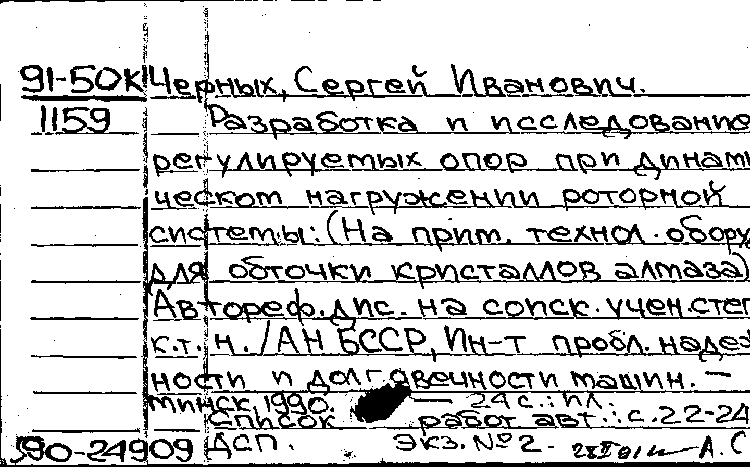 91-50К Черных, Сергей Иванович.
1159 Разработка и исследование
регулируемых опор при динами
ческом нагружении роторной
системы: (На прим. технол. обору
для обточки кристаллов алмаза)
Автореф. дис. на соиск. учен. степ
к.т.н. / АН БССР, Ин-т пробл. надеж
ности и долговечности машин. —
Минск, 1990. — 24 с.: ил.
Список работ авт.: с. 22-24
90-24909 ДСП. Экз. № 2. А. С